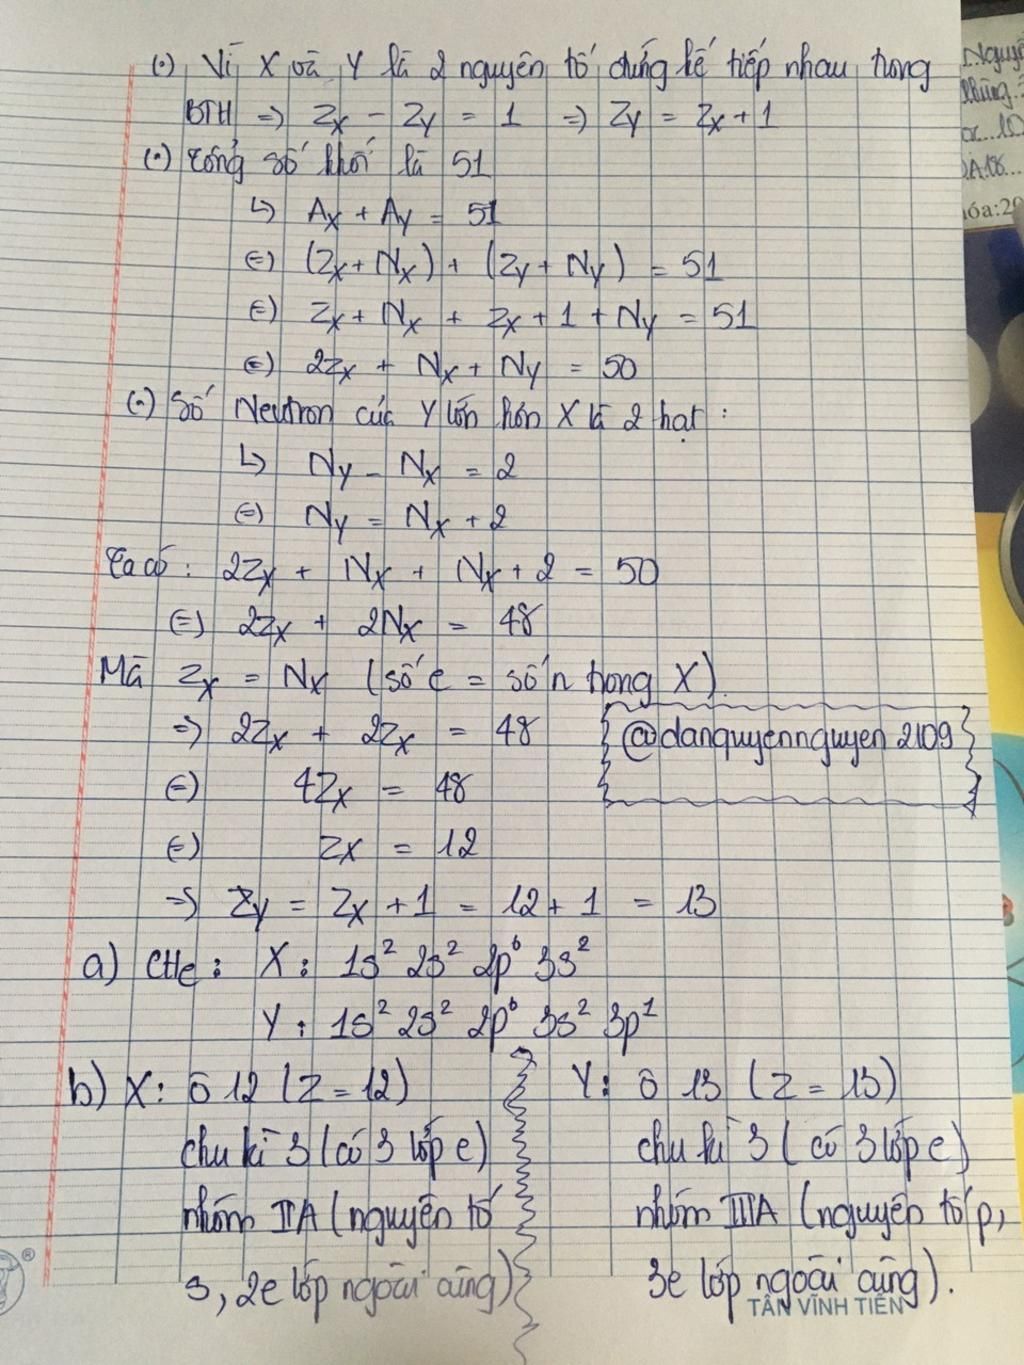 (•) Vì X và Y là 2 nguyên tố đứng kế tiếp nhau trong
BTH => Zx - Zy = 1 => Zy = Zx + 1
(•) Tổng số khối là 51
↳ Ax + Ay = 51
(=) (Zx + Nx) + (Zy + Ny) = 51
(=) Zx + Nx + Zx + 1 + Ny = 51
(=) 2Zx + Nx + Ny = 50
(•) Số Neutron của Y lớn hơn X là 2 hạt :
↳ Ny - Nx = 2
(=) Ny = Nx + 2
Ta có : 2Zx + Nx + Nx + 2 = 50
(=) 2Zx + 2Nx = 48
Mà Zx = Nx (số e = số n trong X).
=> 2Zx + 2Zx = 48
@danquyennguyen 2109
(=) 4Zx = 48
(=) Zx = 12
=> Zy = Zx + 1 = 12 + 1 = 13
a) CHe : X : 1s² 2s² 2p⁶ 3s²
Y : 1s² 2s² 2p⁶ 3s² 3p¹
b) X : ô 12 (Z = 12)
chu kì 3 (có 3 lớp e)
nhóm IIA (nguyên tố
s, 2e lớp ngoài cùng)
Y : ô 13 (Z = 13)
chu kì 3 (có 3 lớp e)
nhóm IIIA (nguyên tố p,
3e lớp ngoài cùng).
TÂN VĨNH TIẾN